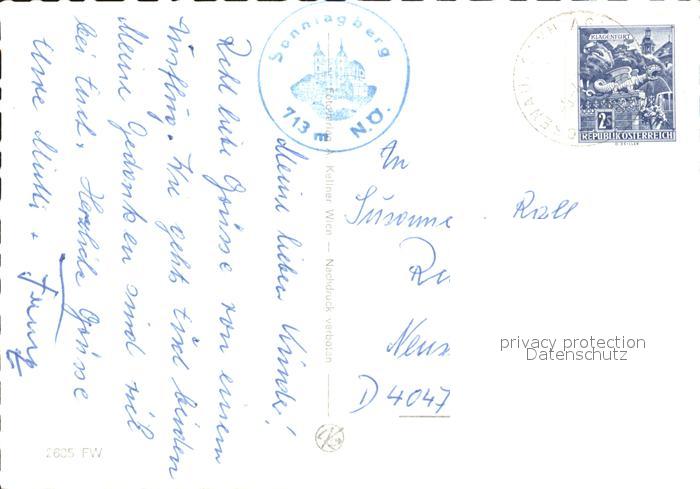 Sonntagberg
713 m N.Ö.
KLAGENFURT
2S
REPUBLIK ÖSTERREICH
Meine lieben Kinder!
Recht liebe Grüsse von einem
Ausflug. Wie geht es Euch beiden
Meine Gedanken sind viel
bei Euch. Herzliche Grüsse
Eure Mutti +
Kellner Wien — Nachdruck verboten
An
Susanne Rall
Neus
D 4047
privacy protection
Datenschutz
2635 FW